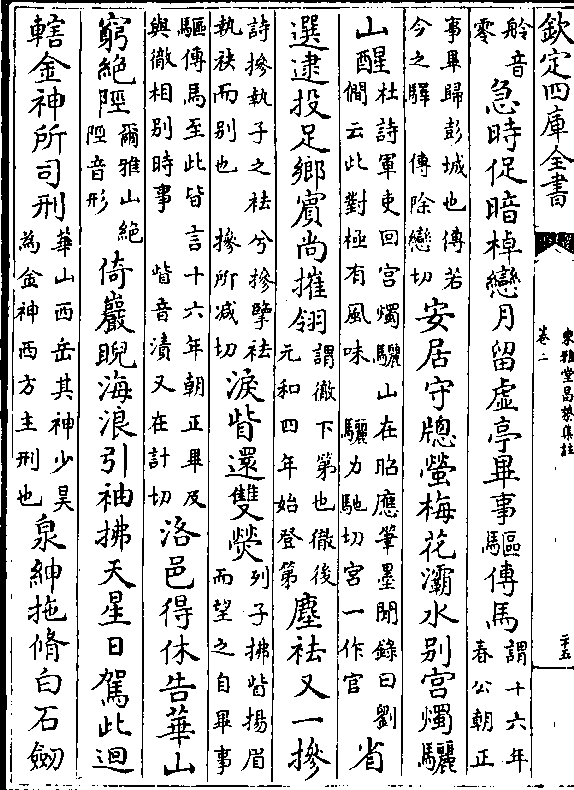 欽定四庫全書
東雅堂昌黎集註
卷二
二十五
舲音零急時促暗棹戀月留虛亭畢事驅傳馬謂十六年春公朝正
事畢歸彭城也傳若今之驛 傳除戀切安居守牕螢梅花灞水别宫燭驪
山醒杜詩軍吏回官燭驪山在昭應筆墨聞錄曰劉僩云此對極有風味 驪力馳切宮一作官省
選逮投足鄉賓尚摧翎謂徹下第也徹後元和四年始登第塵袪又一摻
詩摻執子之袪兮摻擥袪執袂而别也 摻所减切淚眥還雙熒列子拂眥揚眉而望之自畢事
驅傳馬至此皆言十六年朝正畢及與徹相别時事 眥音漬又在計切洛邑得休告華山
窮絶陘爾雅山絶陘音形倚巖睨海浪引袖拂天星日駕此迴
轄金神所司刑華山西岳其神少昊為金神西方主刑也泉紳拖脩白石劒